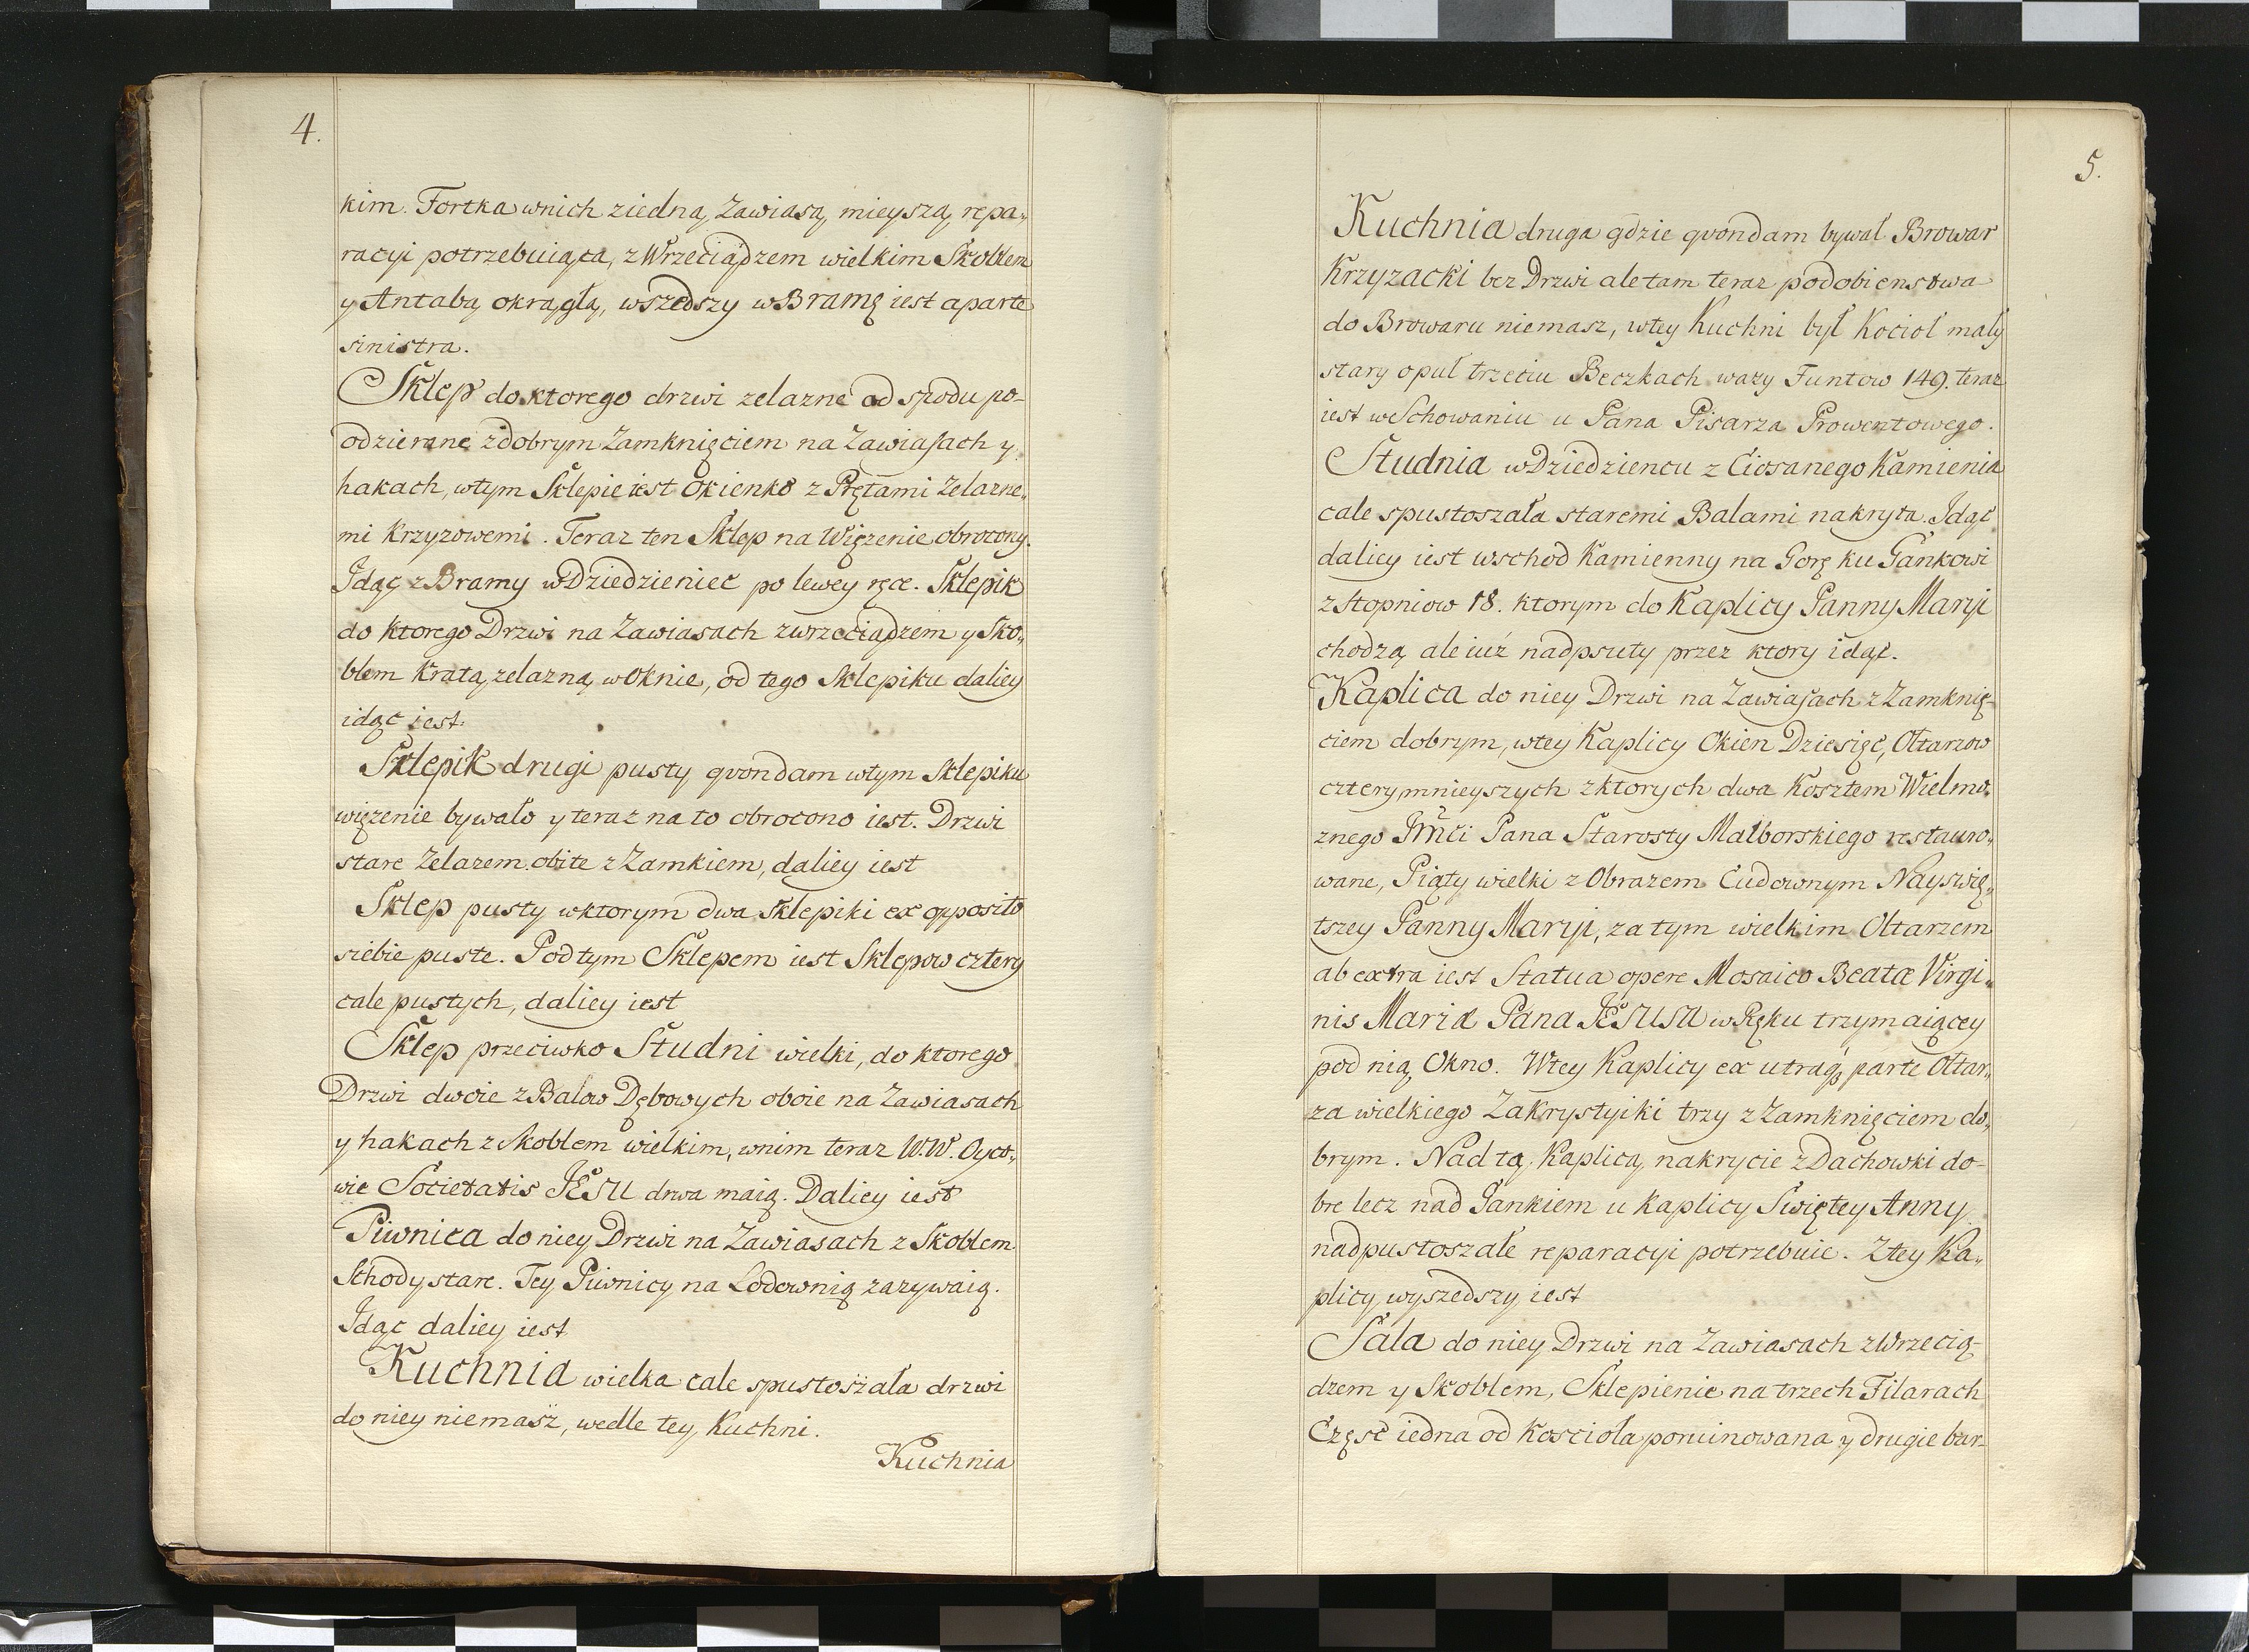 4.
kim. Fortka wnich ziedną Zawiasą mieyszą repa„
racyi potrzebuiąca, z Wrzeciądzem wielkim Skoblem
y Antabą okrągłą, wszedszy w Bramę iest a parte
sinistra.
Sklep do ktorego drzwi zelazne od spodu po-
odzierane zdobrym Zamknięciem na Zawiasach y
hakach, wtym Sklepie iest Okienko z Prętami Zelazne„
mi Krzyzowemi. Teraz ten Sklep na Więzenie obrocony.
Idąc z Bramy w Dziedzieniec po lewey ręce. Sklepik
do ktorego Drzwi na Zawiasach zwrzeciądzem y Sko„
blem Kratą zelazną w Oknie, od tego Sklepiku daliey
idąc iest.
Sklepik drugi pusty qvondam wtym Sklepiku
więzenie bywało y teraz na to obrocono iest. Drzwi
stare Zelazem obite z Zamkiem, daliey iest
Sklep pusty wktorym dwa Sklepiki ex opposito
siebie puste. Pod tym Sklepem iest Sklepow cztery
cale pustych, daliey iest
Sklep przeciwko Studni wielki, do ktorego
Drzwi dwoie z Balow Dębowych oboie na Zawiasach
y hakach z Skoblem wielkim, wnim teraz W.W. Oyco„
wie Societatis JESU drwa maią. Daliey iest
Piwnica do niey Drzwi na Zawiasach z Skoblem.
Schody stare. Tey Piwnicy na Lodownią zazywaią.
Idąc daliey iest
Kuchnia wielka cale spustoszała drzwi
do niey niemasz, wedle tey Kuchni.
Kuchnia
5.
Kuchnia druga gdzie qvondam bywał Browar
Krzyzacki bez Drzwi ale tam teraz podobienstwa
do Browaru niemasz, wtey Kuchni był Kocioł mały
stary opuł trzeciu Beczkach wazy Funtow 149. teraz
iest w Schowaniu u Pana Pisarza Prowentowego.
Studnia w Dziedziencu z Ciosanego Kamienia
cale spustoszała staremi Balami nakryta. Idąc
daliey iest wschod Kamienny na Gorę ku Gankowi
z Stopniow 18. ktorym do Kaplicy Panny Maryi
chodzą ale iuż nadpsuty przez ktory idąc.
Kaplica do niey Drzwi na Zawiasach z Zamknię-
ciem dobrym, wtey Kaplicy Okien Dziesięć, Ołtarzow
cztery mnieyszych zktorych dwa Kosztem Wielmo„
znego Jmci Pana Starosty Malborskiego restauro„
wane, Piąty wielki z Obrazem Cudownym Nayswię„
tszey Panny Maryi, za tym wielkim Oltarzem
ab extra iest Statua opere Mosaico Beatæ Virgi„
nis Mariæ Pana JESUSA w Ręku trzymaiącey
pod nią Okno. Wtey Kaplicy ex utraq parte Oltar„
za wielkiego Zakrystyiki trzy z Zamknięciem do„
brym. Nad tą Kaplicą nakrycie z Dachowki do-
bre lecz nad Gankiem u Kaplicy Swiętey Anny
nadpustoszałe reparacyi potrzebuie. Ztey Ka„
plicy wyszedszy iest
Sala do niey Drzwi na Zawiasach z Wrzecią-
dzem y Skoblem, Sklepienie na trzech Filarach
Częsc iedna od Koscioła poruinowana y drugie bar-